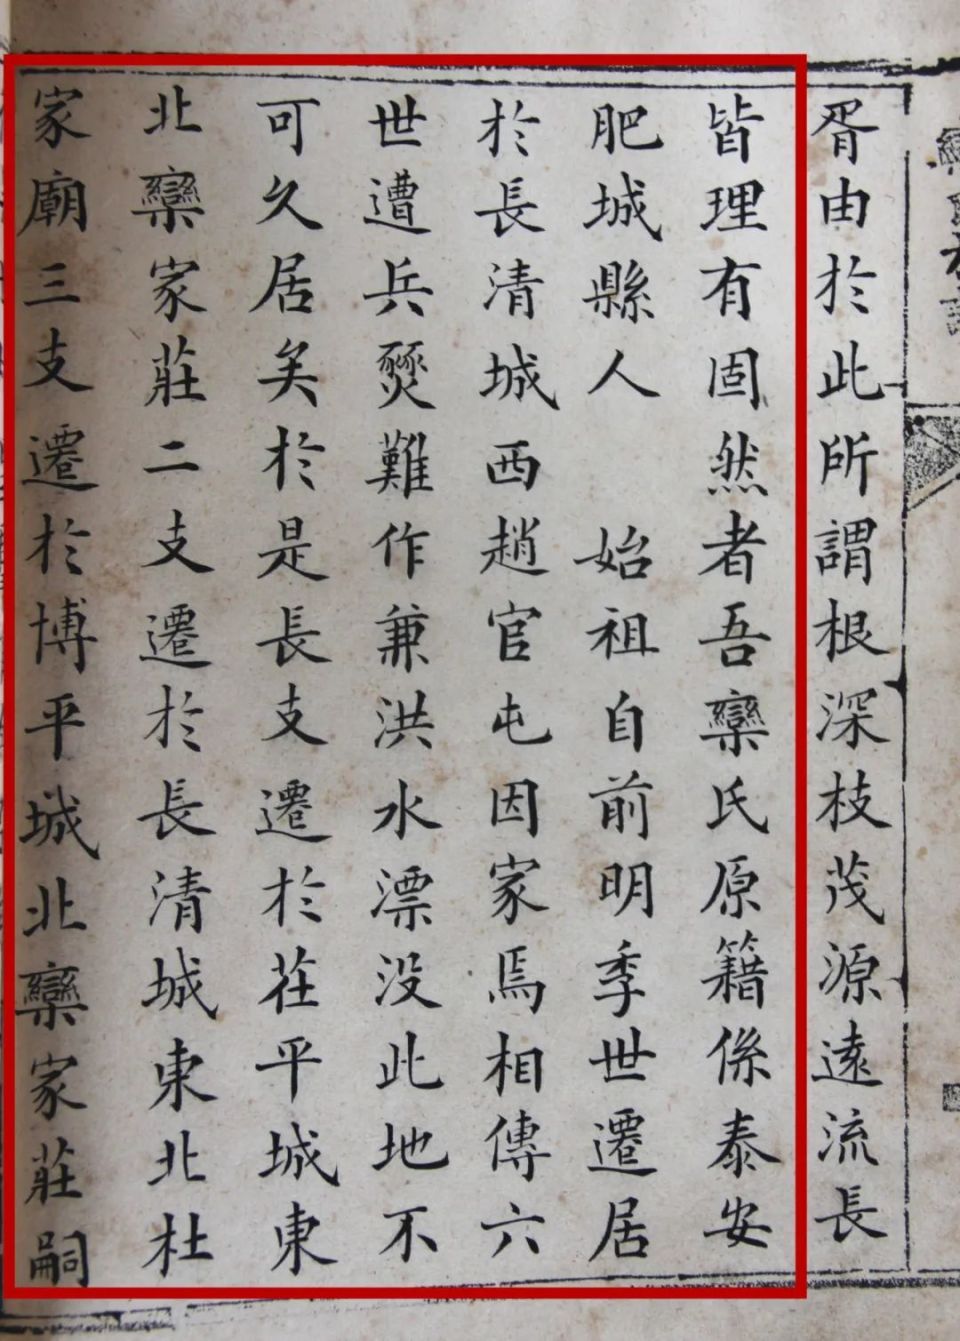 胥由於此所謂根深枝茂源遠流長
皆理有固然者吾欒氏原籍係泰安
肥城縣人　始祖自前明季世遷居
於長清城西趙官屯因家焉相傳六
世遭兵燹難作兼洪水漂没此地不
可久居矣於是長支遷於茌平城東
北欒家莊二支遷於長清城東北杜
家廟三支遷於博平城北欒家莊嗣